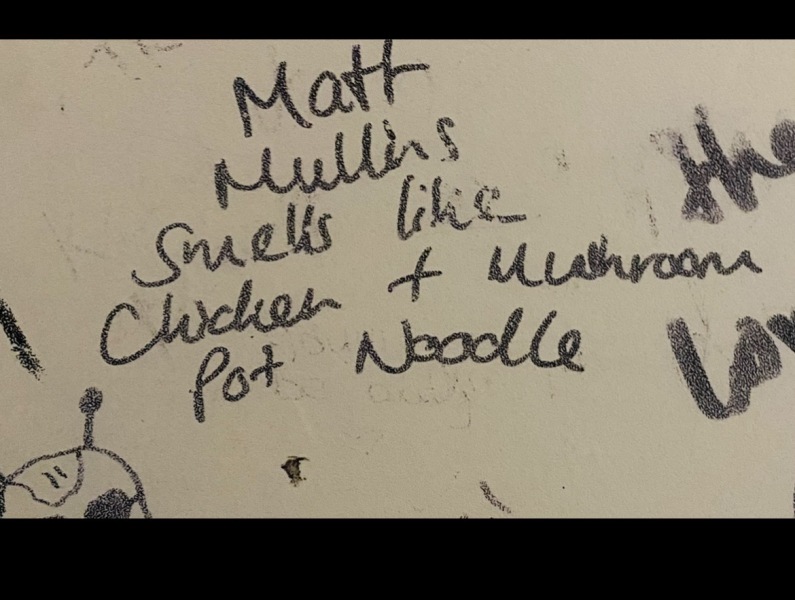 Matt
Mullins
Smells like
Chicken + Mushroom
Pot Noodle
the